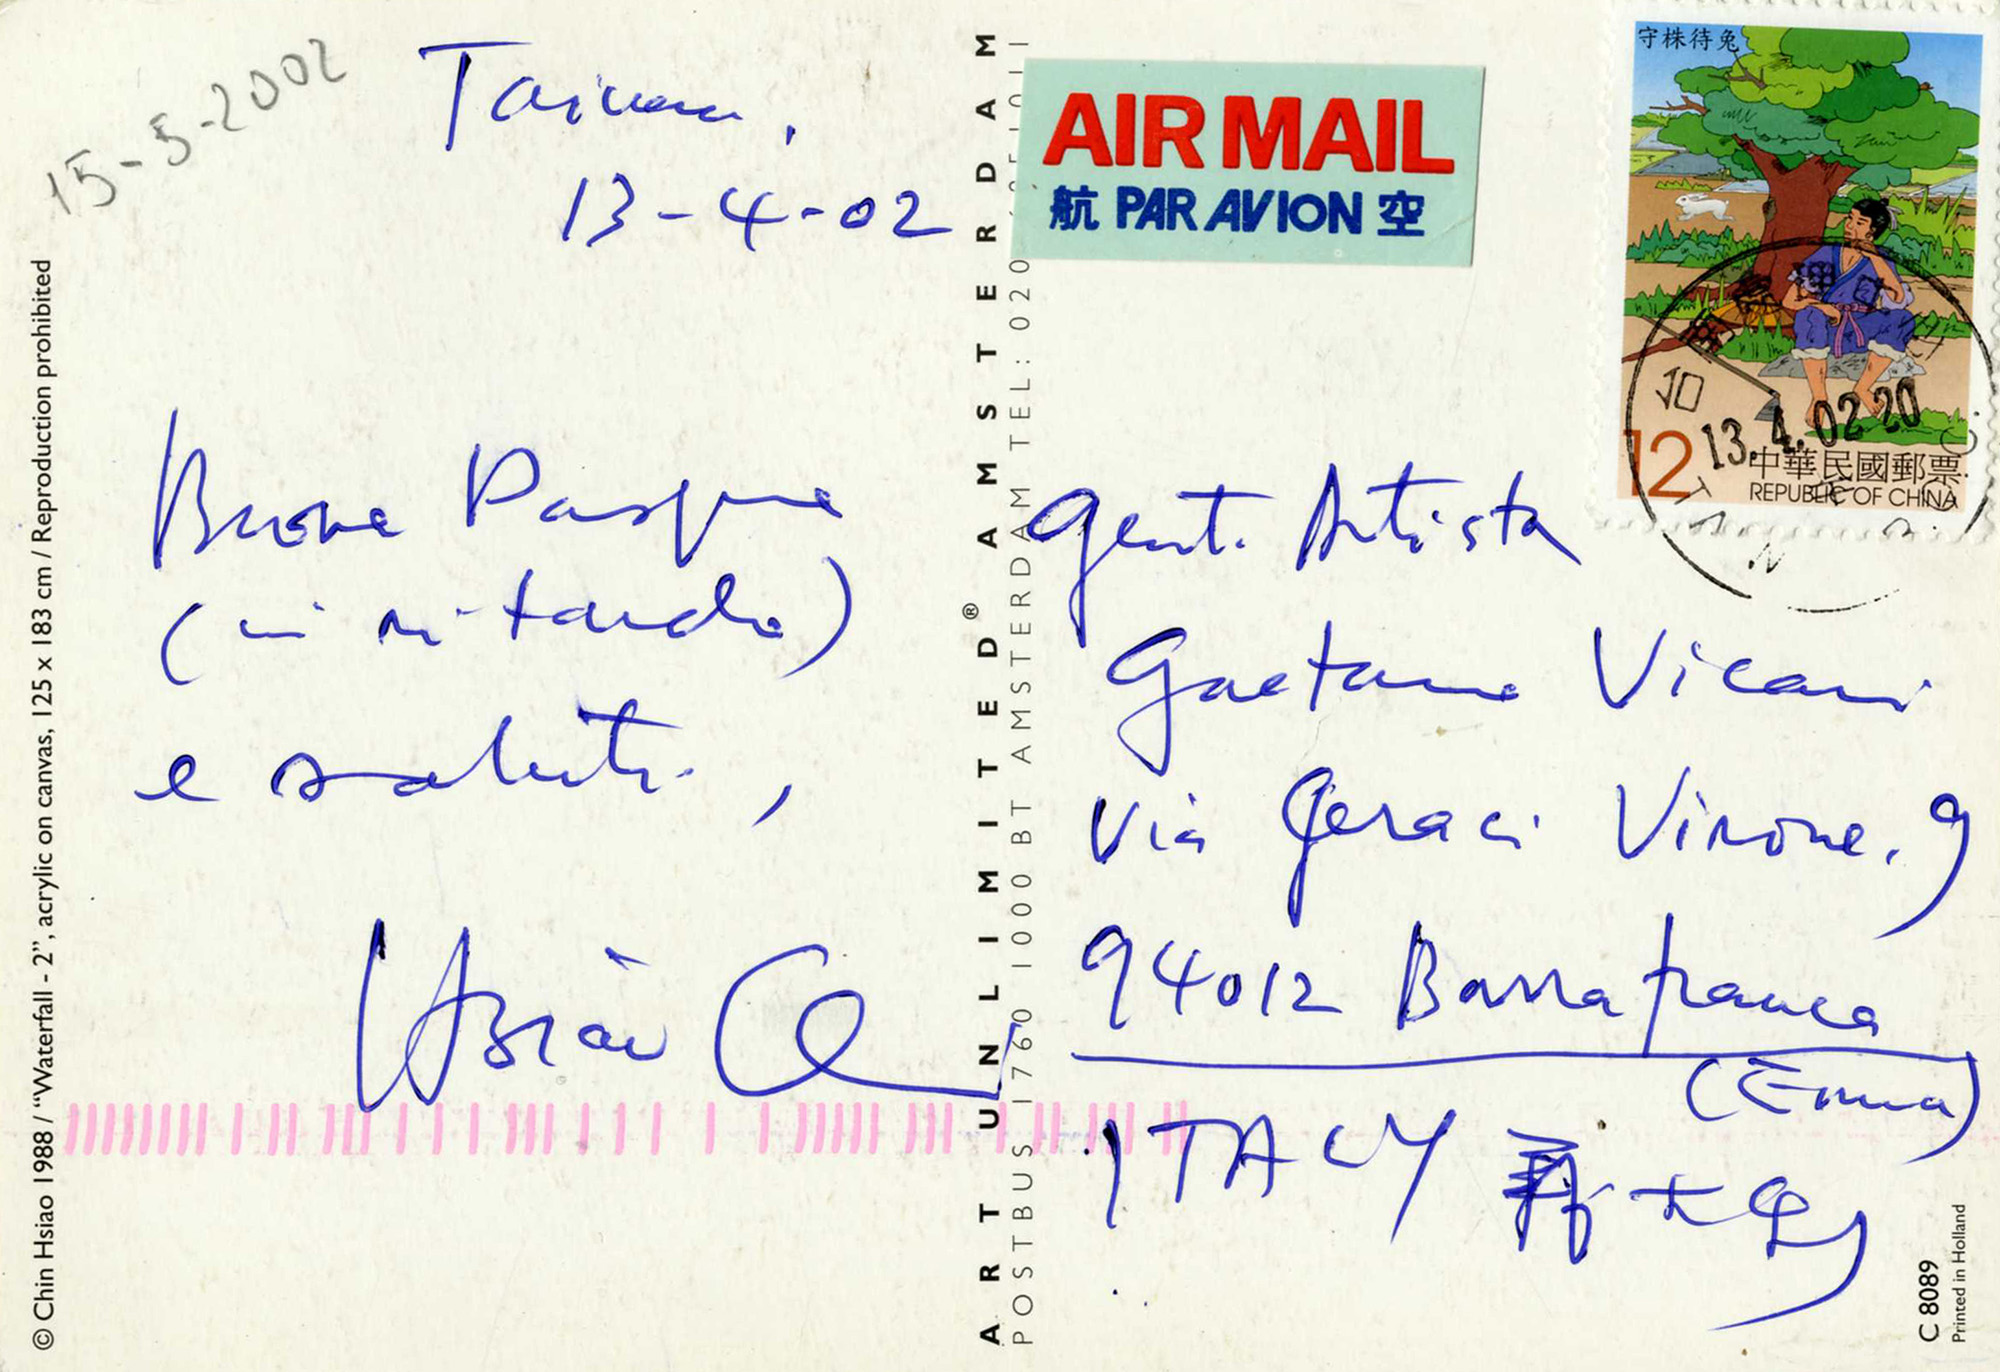 15-5-2002
Taiwan,
13-4-02
Buona Pasqua
(in ritardo)
e saluti,
Hsiao
© Chin Hsiao 1988 / “Waterfall - 2”, acrylic on canvas, 125 x 183 cm / Reproduction prohibited
ART UNLIMITED® AMSTERDAM
POSTBUS 1760 1000 BT AMSTERDAM TEL: 020
AIR MAIL
航 PAR AVION 空
守株待兔
13.4.02.20
12
中華民國郵票
REPUBLIC OF CHINA
Gent. Artista
Gaetano Vicari
Via Geraci Virone. 9
94012 Barrafranca
(Enna)
ITALY
C 8089
Printed in Holland